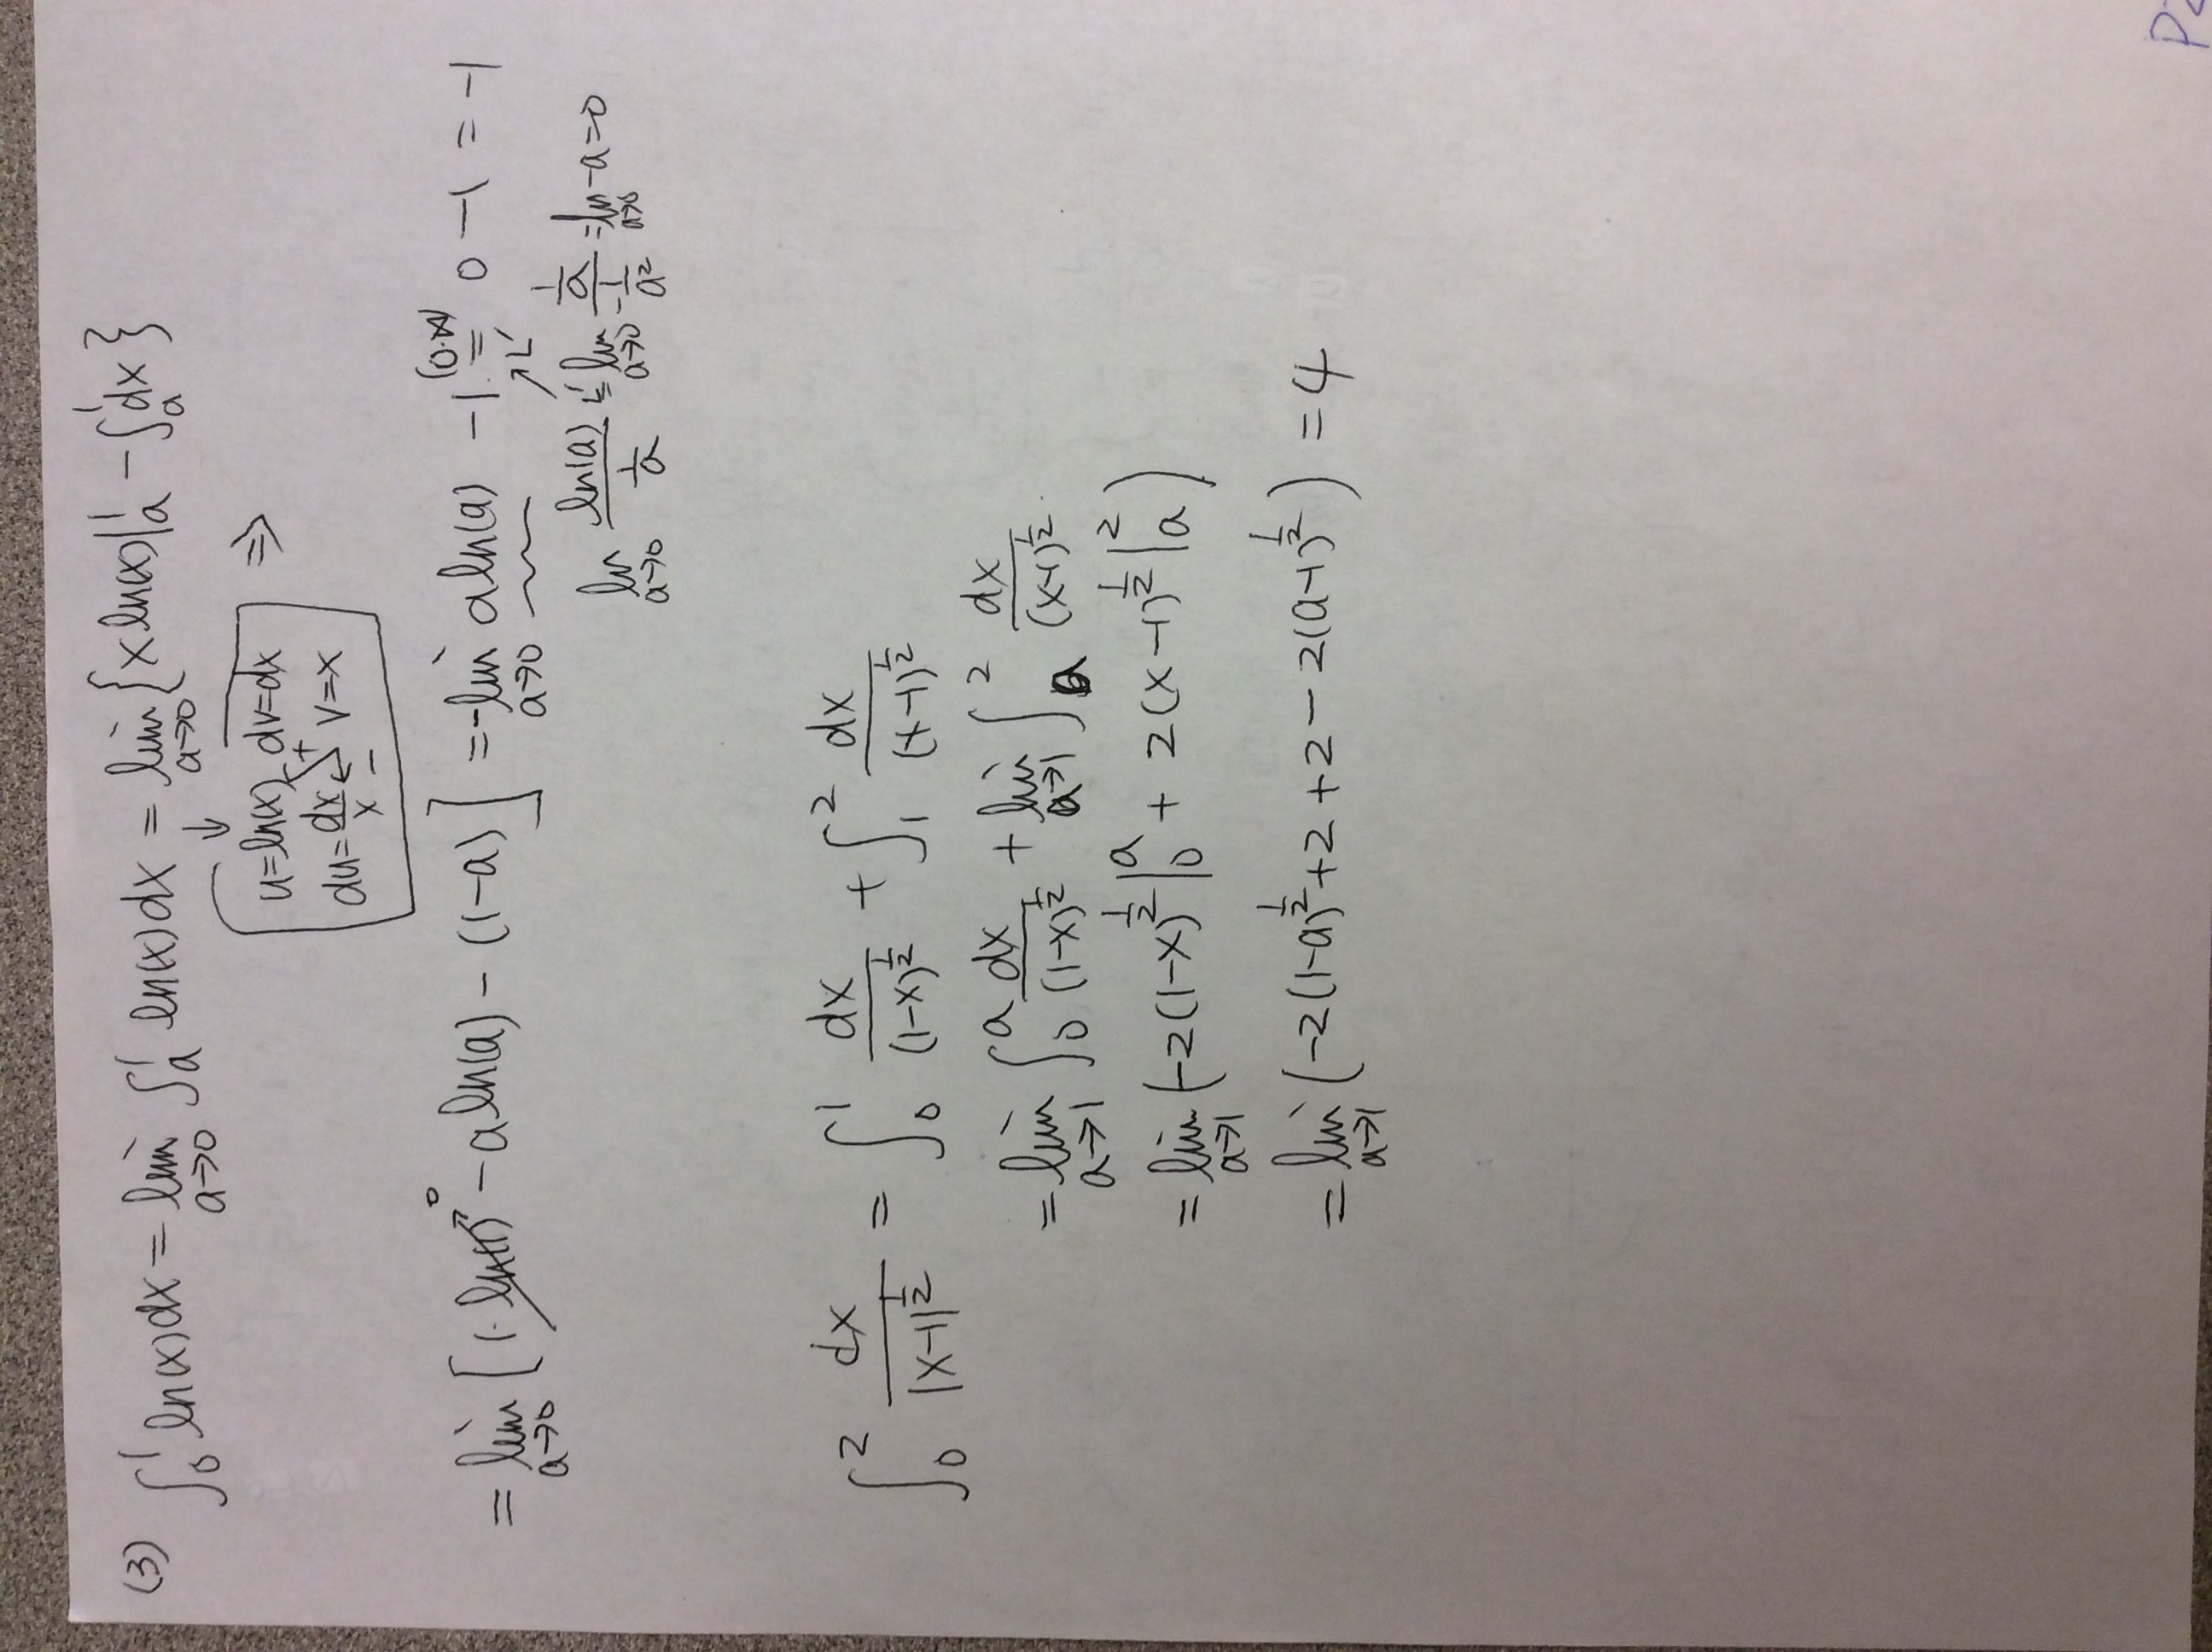 (3) ∫₀¹ ln(x)dx = lim_{a→0} ∫ₐ¹ ln(x)dx = lim_{a→0} {x ln(x)|ₐ¹ − ∫ₐ¹ dx}
↓
u=ln(x) dv=dx ⇒
+
du=dx/x v=x
−
= lim_{a→0} [1·ln(1)↗0 − a ln(a) − (1−a)] = −lim_{a→0} a ln(a) −1 =^{(0·∞)} 0 −1 = −1
↗L'
lim_{a→0} ln(a)/(1/a) =^{L'} lim_{a→0} (1/a)/(−1/a²) = lim_{a→0} −a = 0
∫₀² dx/|x−1|^{1/2} = ∫₀¹ dx/(1−x)^{1/2} + ∫₁² dx/(x−1)^{1/2}
= lim_{a→1} ∫₀ᵃ dx/(1−x)^{1/2} + lim_{a→1} ∫ₐ² dx/(x−1)^{1/2}
= lim_{a→1} (−2(1−x)^{1/2}|₀ᵃ + 2(x−1)^{1/2}|ₐ²)
= lim_{a→1} (−2(1−a)^{1/2} +2 +2 − 2(a−1)^{1/2}) = 4